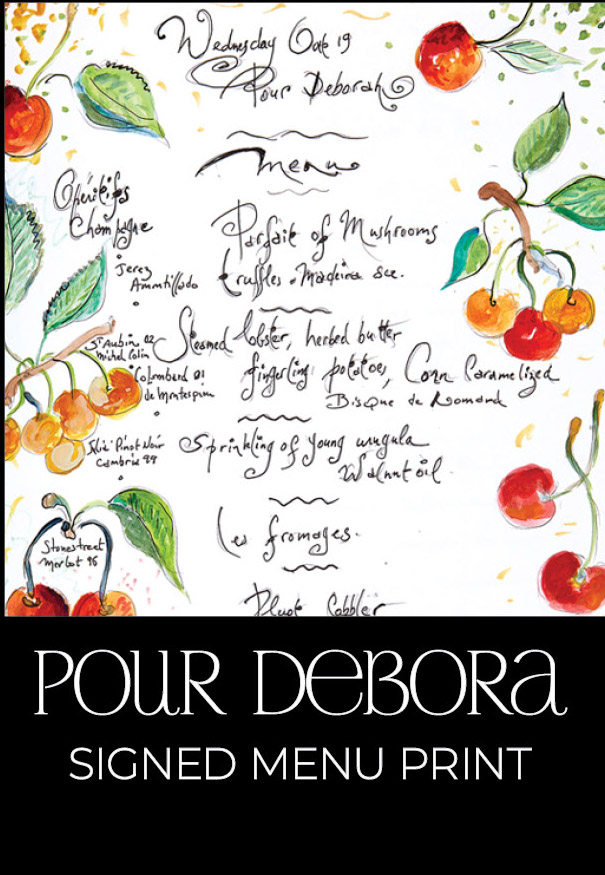 Wednesday Oct 19
Pour Deborah
Menu
Apéritifs
Champagne
Jerez
Ammtillado
St Aubin 02
Michel Colin
Colombard 01
de Montespan
Pinot Noir
Cambria 99
Stonestreet
Merlot 96
Parfait of Mushrooms
truffles . Madeira
Steamed lobster, herbed butter
fingerling potatoes, Corn Caramelized
Bisque de Homard
Sprinkling of young arugula
Walnut oil
Les fromages.
Pluot Cobbler
POUR DEBORA
SIGNED MENU PRINT